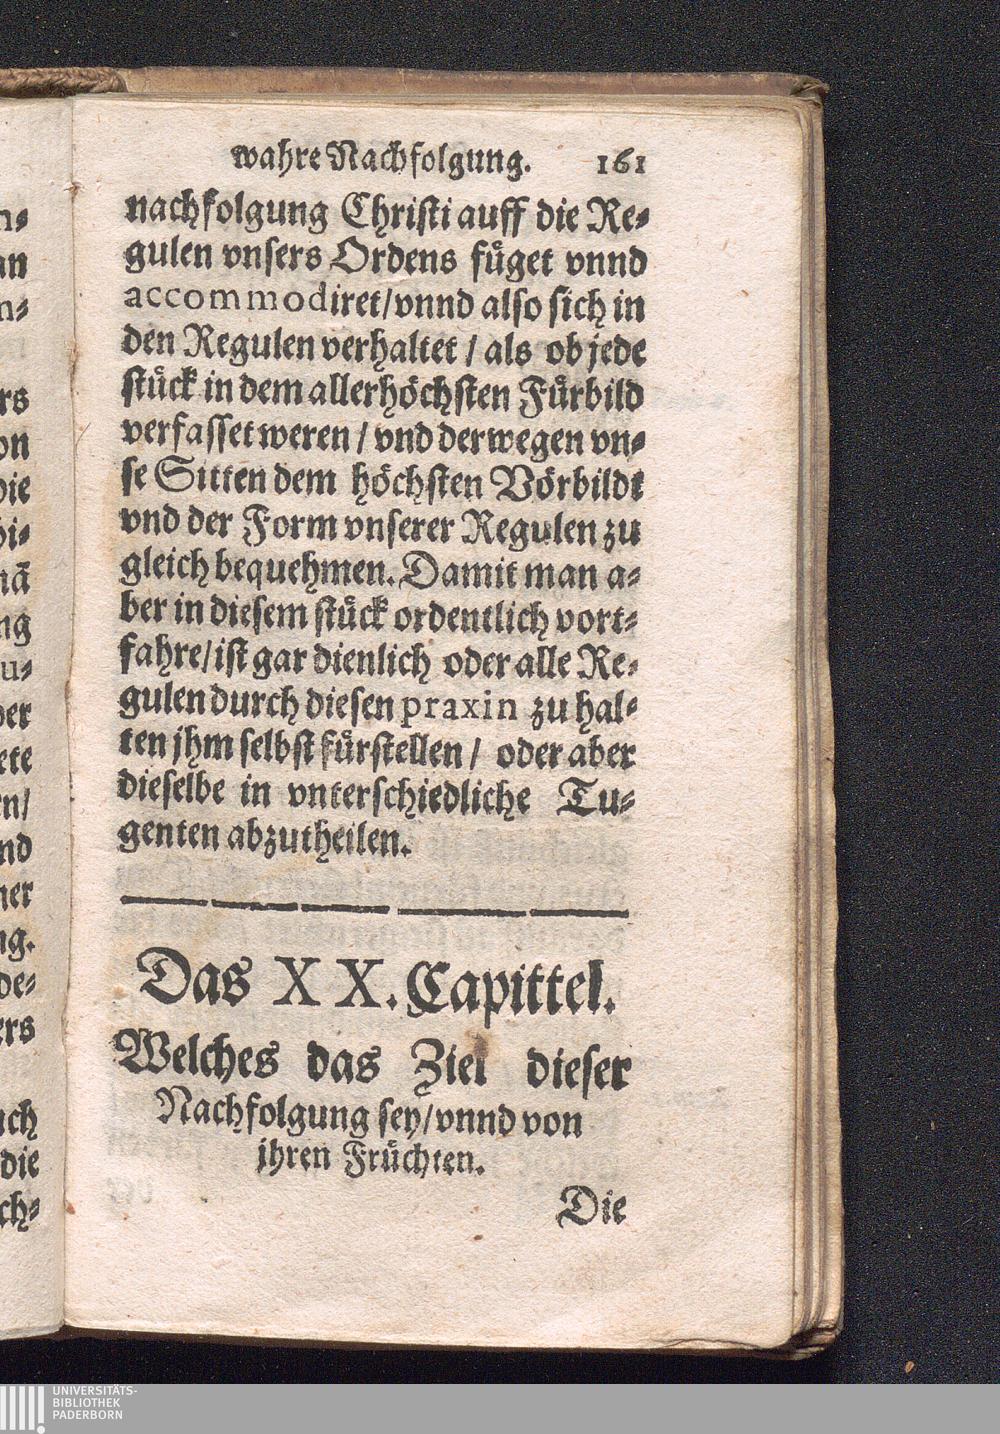 wahre Nachfolgung. 161
nachfolgung Christi auff die Re-
gulen vnsers Ordens füget vnnd
accommodiret/vnnd also sich in
den Regulen verhaltet / als ob jede
stück in dem allerhöchsten Fürbild
verfasset weren / vnd derwegen vn-
se Sitten dem höchsten Vörbildt
vnd der Form vnserer Regulen zu
gleich bequehmen. Damit man a-
ber in diesem stück ordentlich vort-
fahre/ist gar dienlich oder alle Re-
gulen durch diesen praxin zu hal-
ten jhm selbst fürstellen / oder aber
dieselbe in vnterschiedliche Tu-
genten abzutheilen.
Das XX. Capittel.
Welches das Ziel dieser
Nachfolgung sey/vnnd von
jhren Früchten.
Die
UNIVERSITÄTS-
BIBLIOTHEK
PADERBORN